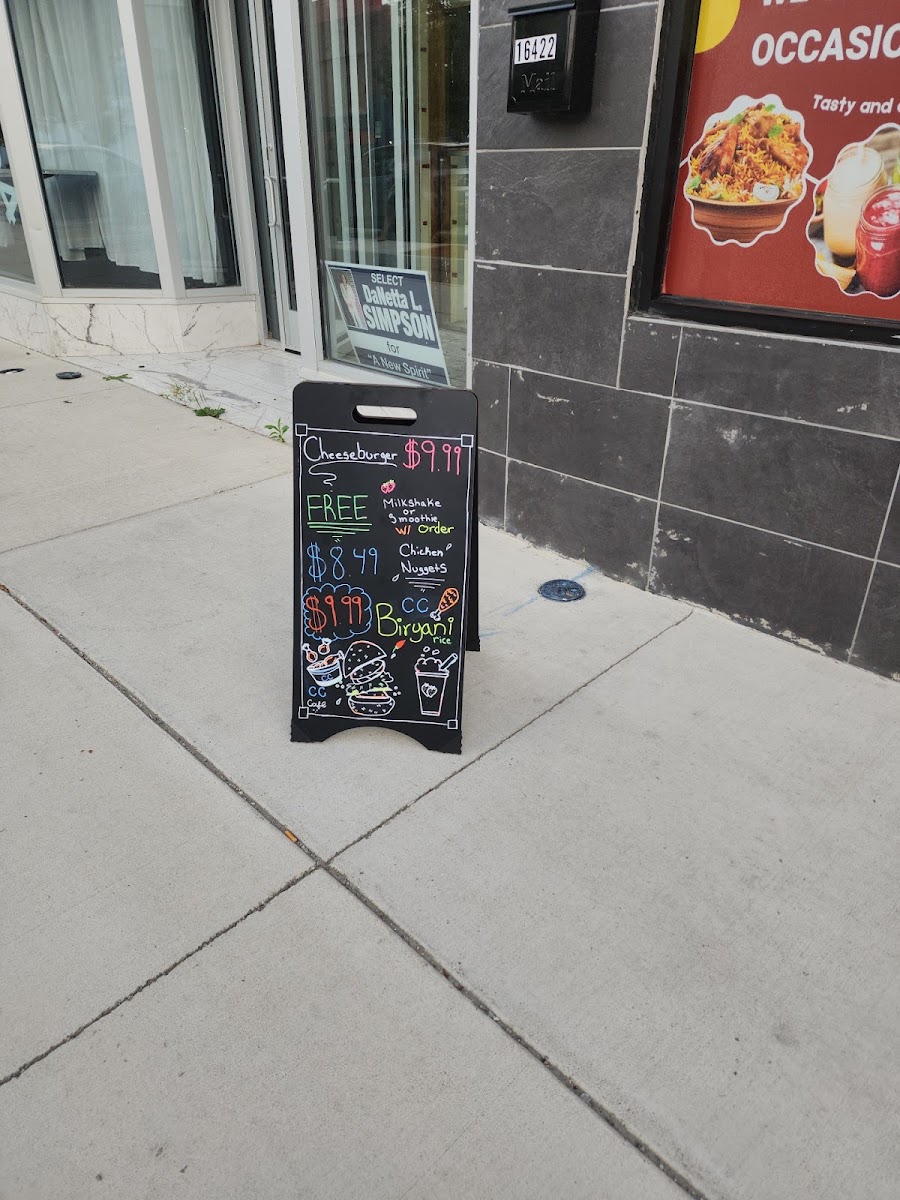 16422
Mail
OCCASIO
Tasty and
SELECT
DaNetta L.
SIMPSON
for
"A New Spirit"
Cheeseburger $9.99
FREE
Milkshake
or
Smoothie
w/ Order
$8.49
Chicken
Nuggets
$9.99
CC
Biryani
rice
CC
CC
Café